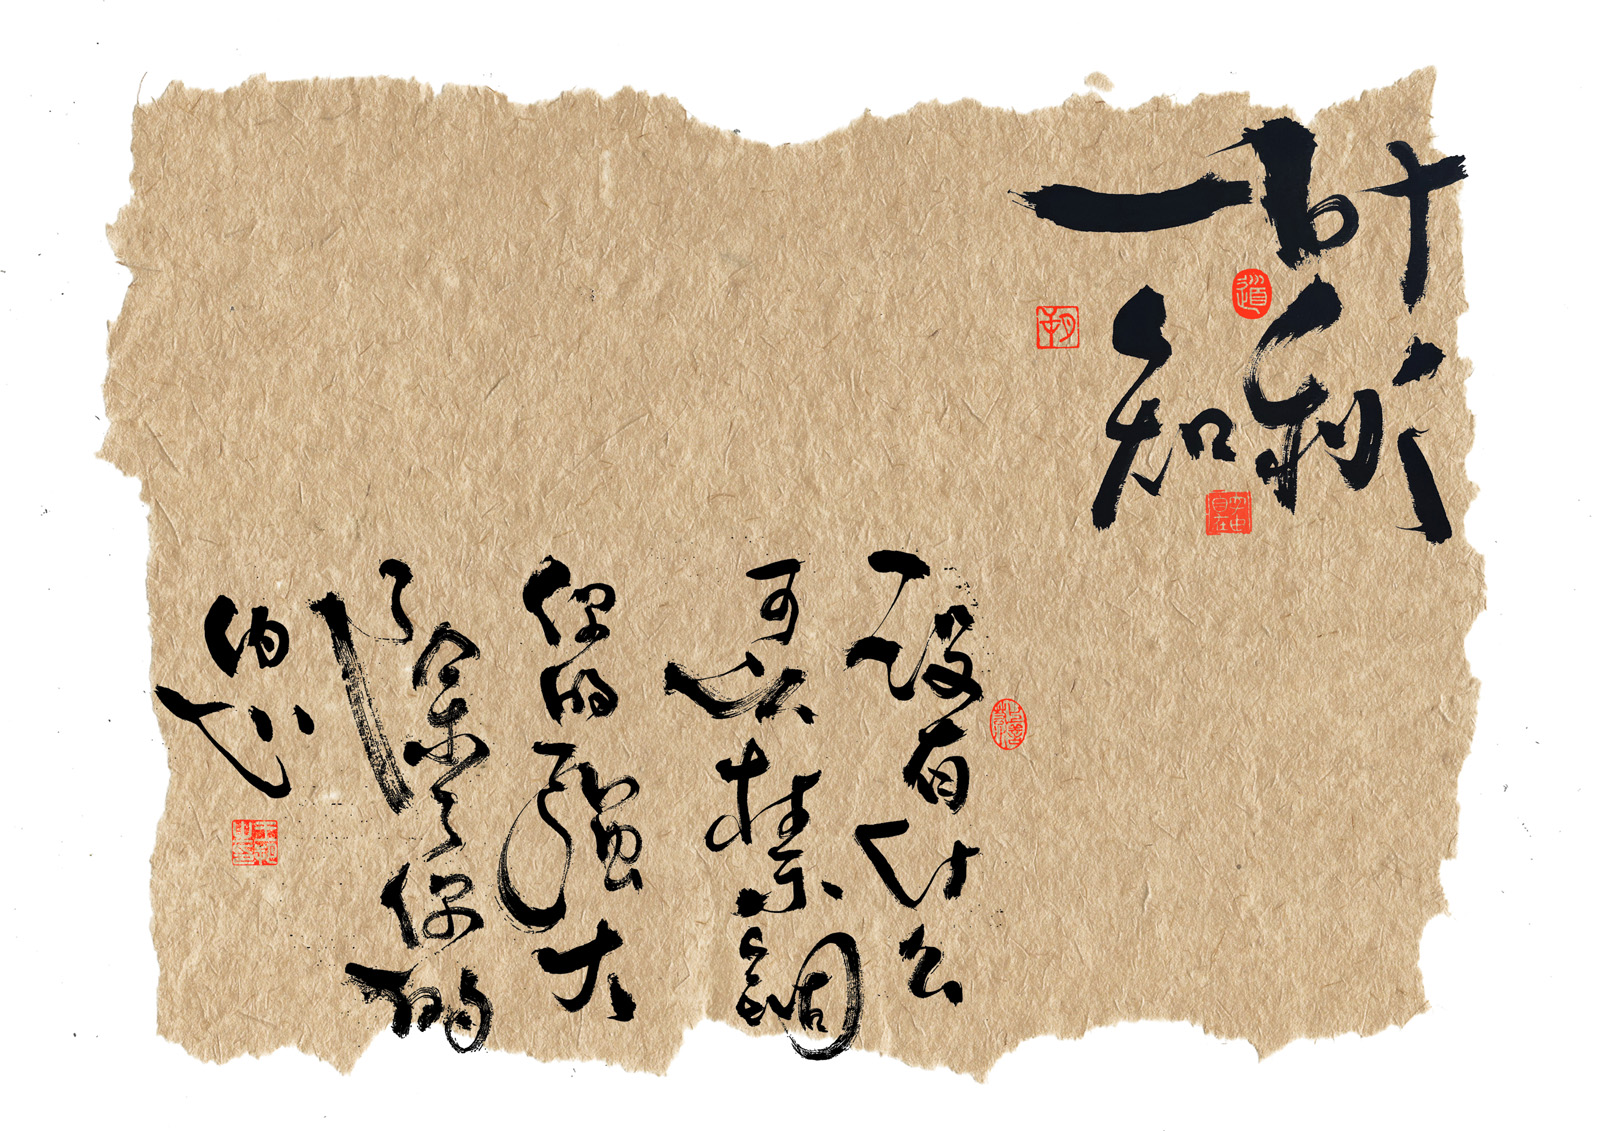 一叶
知秋
道
朔
没有什么
可以禁锢
你的强大
除了你的
内心